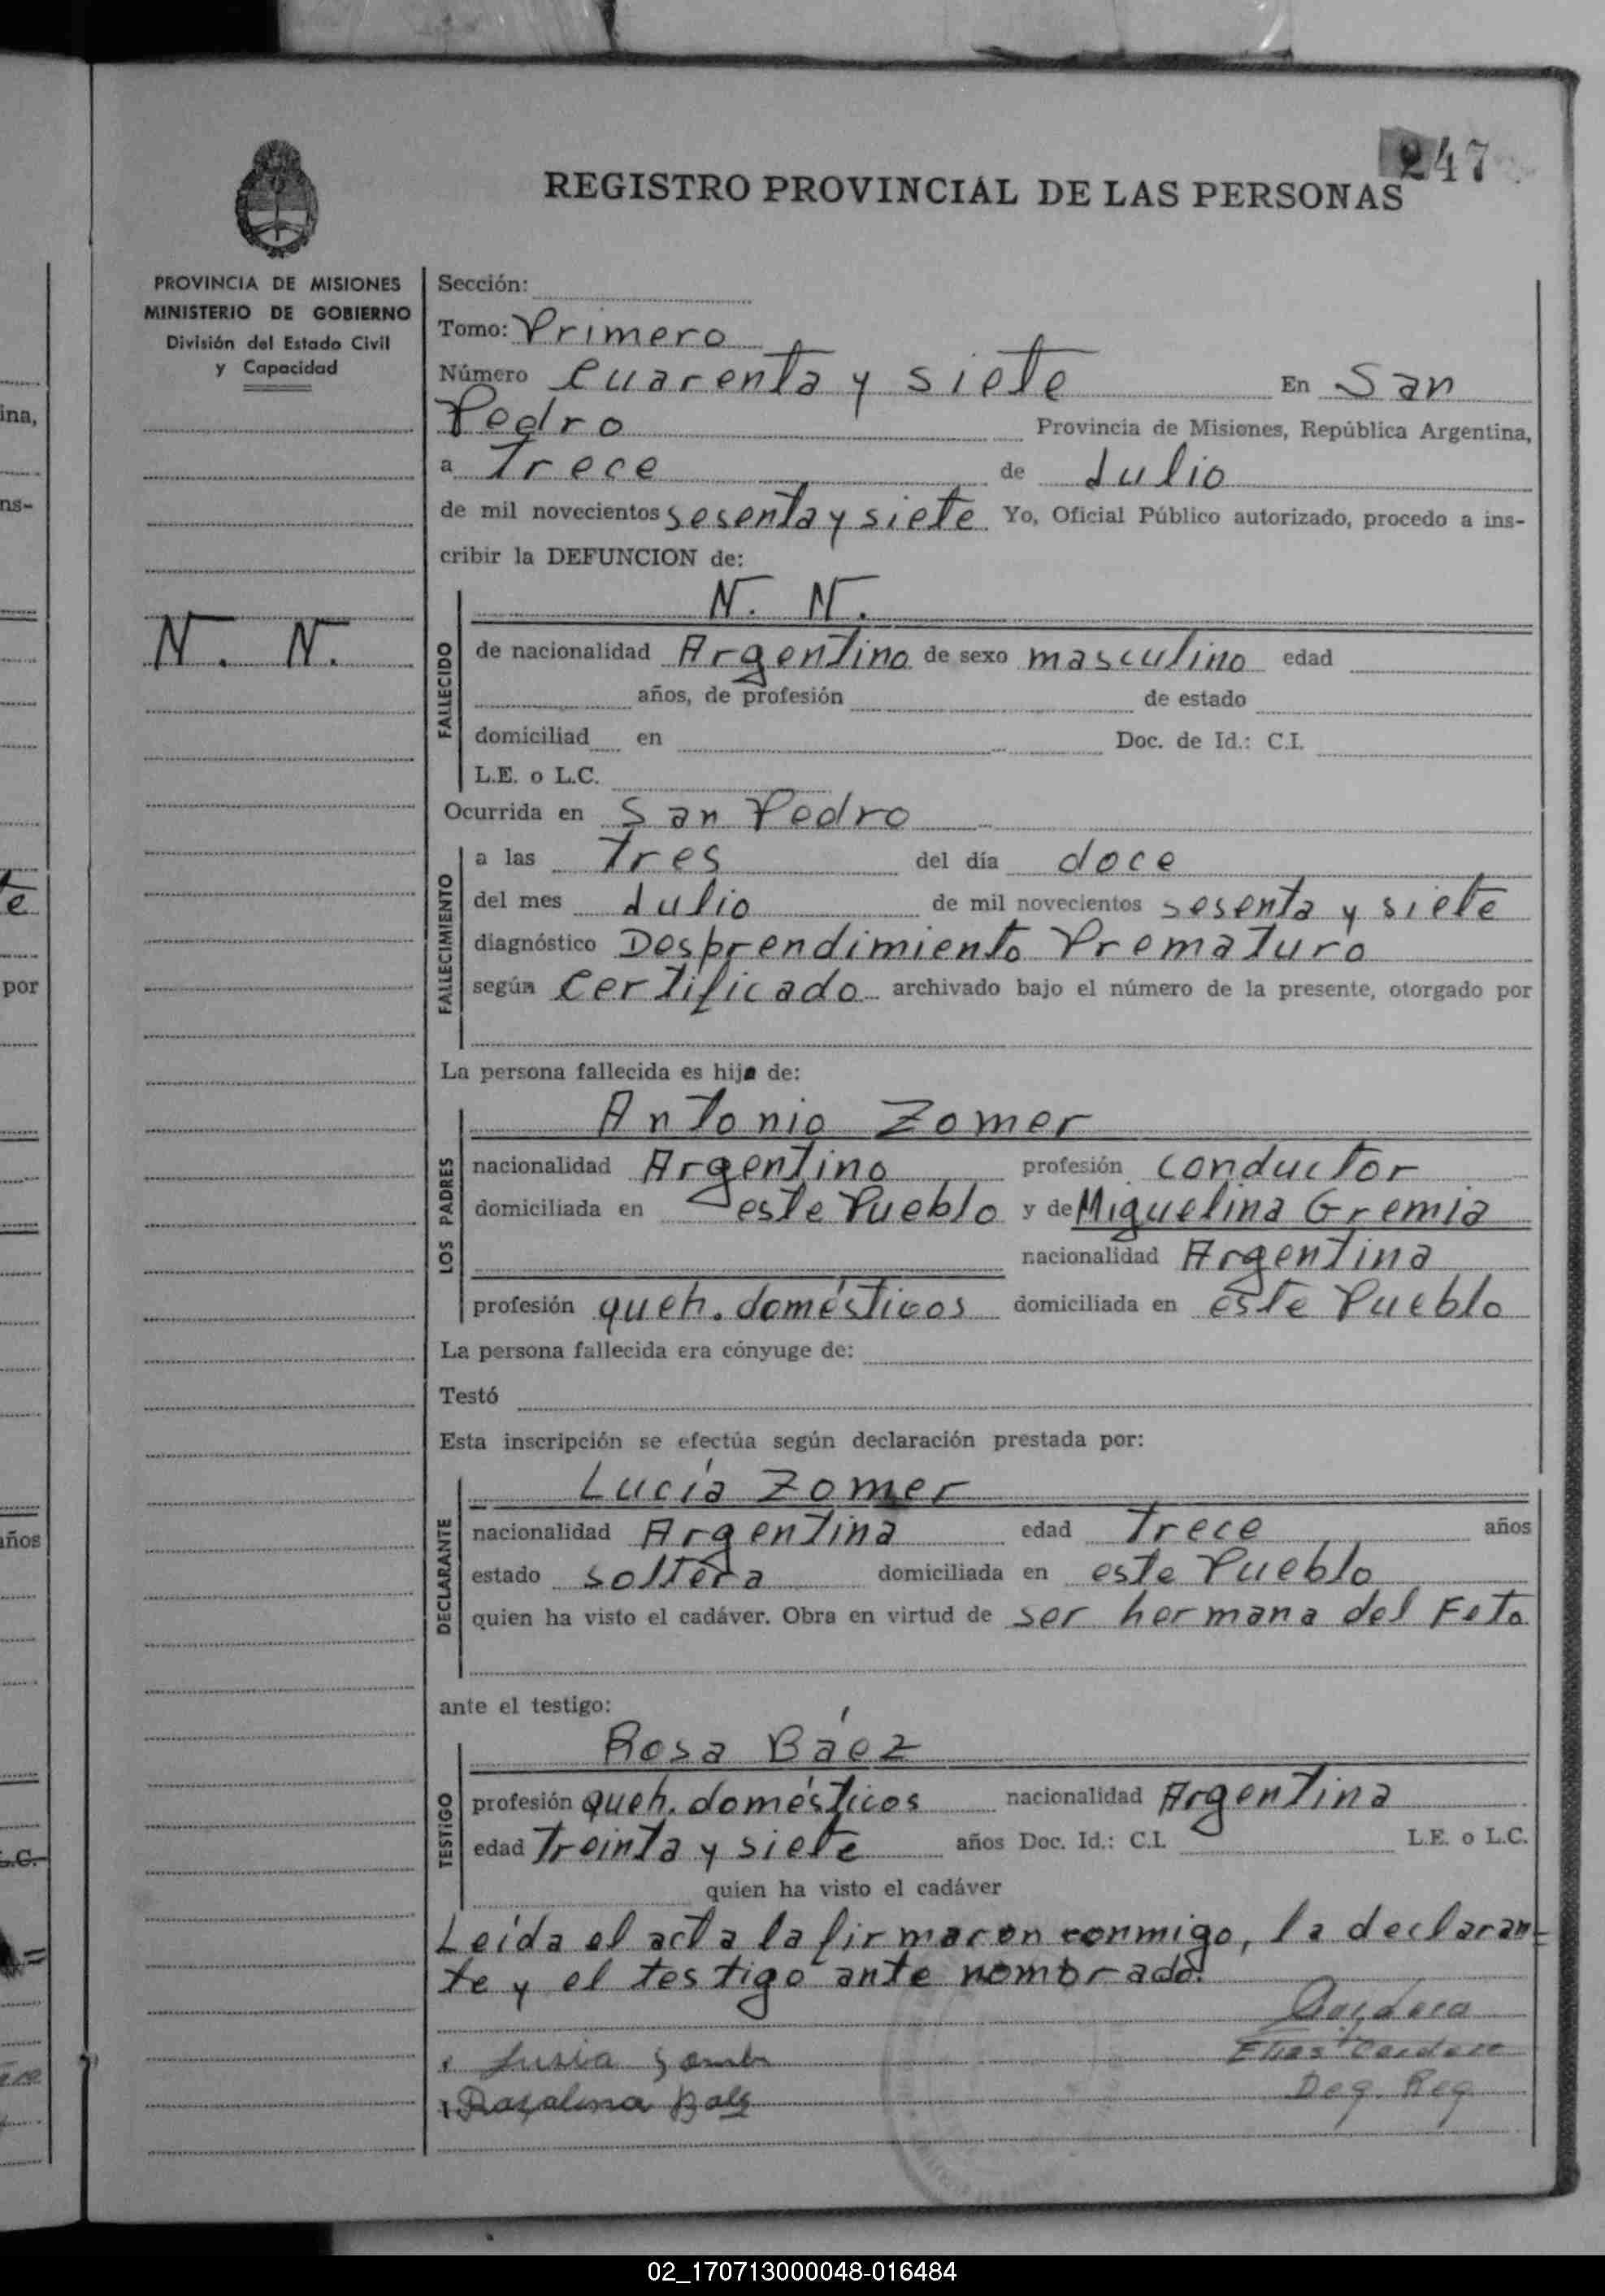 247
REGISTRO PROVINCIAL DE LAS PERSONAS
PROVINCIA DE MISIONES
MINISTERIO DE GOBIERNO
División del Estado Civil
y Capacidad
N. N.
Sección:
Tomo: Primero
Número Cuarenta y siete En San
Pedro Provincia de Misiones, República Argentina,
a Trece de Julio
de mil novecientos sesenta y siete Yo, Oficial Público autorizado, procedo a ins-
cribir la DEFUNCION de:
N. N.
FALLECIDO
de nacionalidad Argentino de sexo masculino edad
años, de profesión de estado
domiciliad en Doc. de Id.: C.I.
L.E. o L.C.
Ocurrida en San Pedro
FALLECIMIENTO
a las Tres del día doce
del mes Julio de mil novecientos sesenta y siete
diagnóstico Desprendimiento Prematuro
según Certificado archivado bajo el número de la presente, otorgado por
La persona fallecida es hijo de:
LOS PADRES
Antonio Zomer
nacionalidad Argentino profesión conductor
domiciliada en este Pueblo y de Miguelina Gremia
nacionalidad Argentina
profesión queh. domésticos domiciliada en este Pueblo
La persona fallecida era cónyuge de:
Testó
Esta inscripción se efectúa según declaración prestada por:
DECLARANTE
Lucía Zomer
nacionalidad Argentina edad Trece años
estado soltera domiciliada en este Pueblo
quien ha visto el cadáver. Obra en virtud de ser hermana del Feto
ante el testigo:
TESTIGO
Rosa Báez
profesión queh. domésticos nacionalidad Argentina
edad Treinta y siete años Doc. Id.: C.I. L.E. o L.C.
quien ha visto el cadáver
Leída el acta la firmaron conmigo, la declaran=
te y el testigo ante nombrado.
Elias Cardozo
Deg. Reg
ina,
ns-
te
por
años
L.C.
02_170713000048-016484